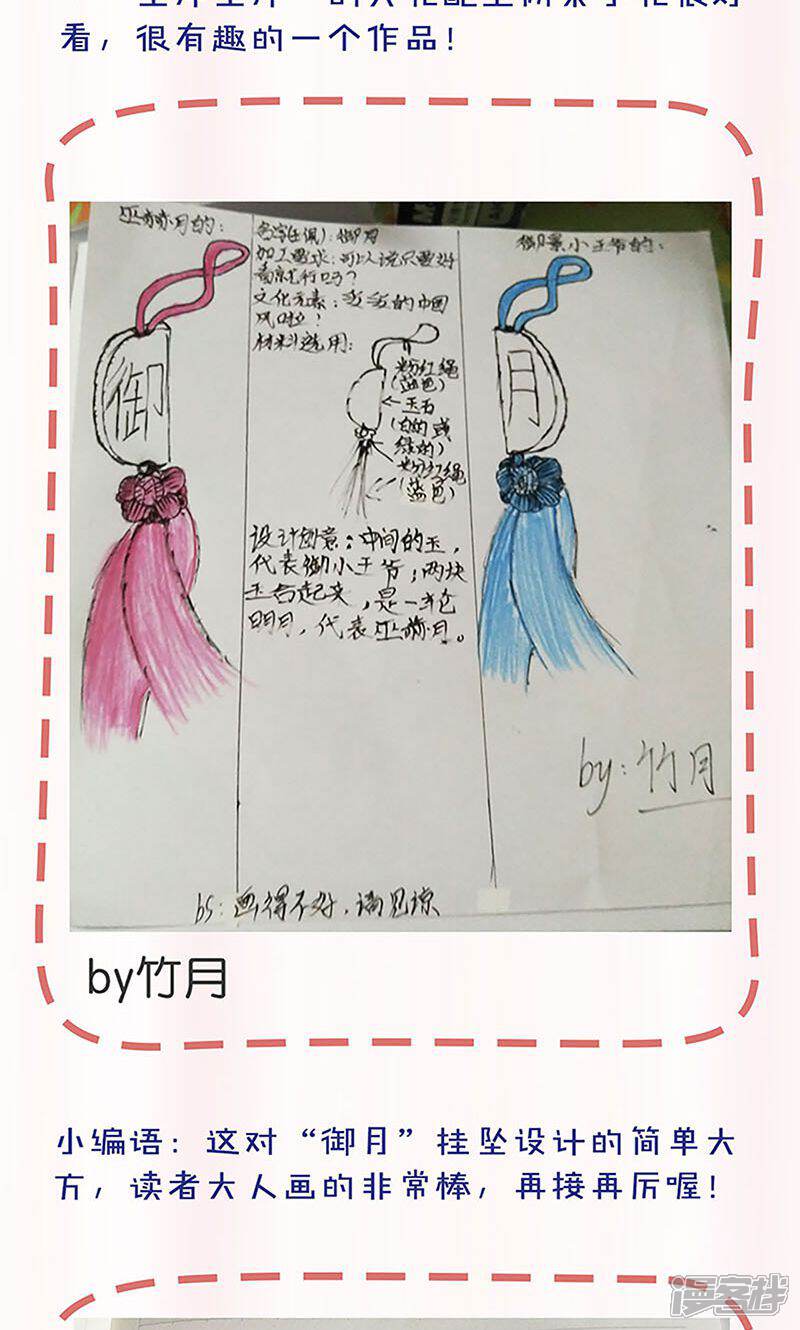 看，很有趣的一个作品！
巫亦亦月的：
名字(玉佩)：御月
加工要求：可以说只要好
看就行吗？
文化元素：妥妥的中国
风啦！
材料选用：
粉红绳
(蓝色)
玉石
(白的或
绿的)
粉红绳
(蓝色)
设计创意：中间的玉，
代表御小王爷；两块
玉合起来，是一轮
明月，代表巫
月。
御景小王爷的：
御
月
by：竹月
bs：画得不好，请见谅
by竹月
小编语：这对“御月”挂坠设计的简单大
方，读者大人画的非常棒，再接再厉喔！
漫客栈